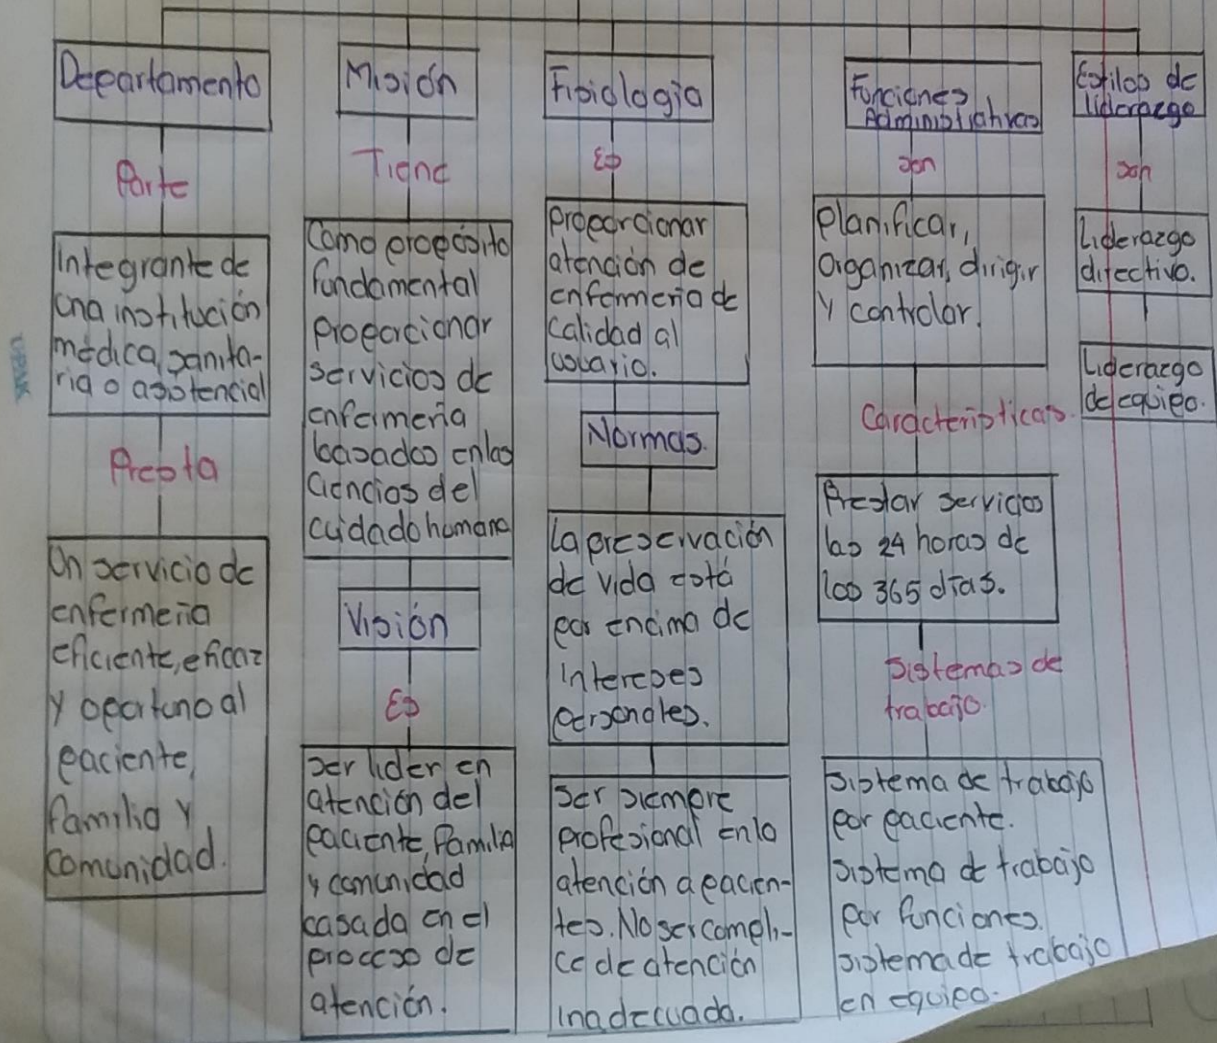 Departamento
Parte
Integrante de
una institución
médica, sanita-
ria o asistencial
Presta
Un servicio de
enfermería
eficiente, eficaz
y oportuno al
paciente,
familia y
comunidad.
Misión
Tiene
Como propósito
fundamental
proporcionar
servicios de
enfermería
basados en las
ciencias del
cuidado humano
Visión
Es
ser líder en
atención del
paciente, familia
y comunidad
basada en el
proceso de
atención.
Fisiología
Es
proporcionar
atención de
enfermería de
calidad al
usuario.
Normas.
La preservación
de vida está
por encima de
intereses
personales.
Ser siempre
profesional en la
atención a pacien-
tes. No ser cómpli-
ce de atención
inadecuada.
Funciones
Administrativas
son
Planificar,
organizar, dirigir
y controlar.
Características.
Prestar servicios
las 24 horas de
los 365 días.
Sistemas de
trabajo.
sistema de trabajo
por paciente.
sistema de trabajo
por funciones.
sistema de trabajo
en equipo.
Estilos de
liderazgo
son
Liderazgo
directivo.
Liderazgo
de equipo.